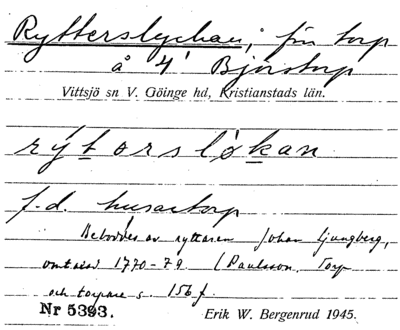 Rytterslyckan, fr. torp
å 4¹ Bjärstorp
Vittsjö sn V. Göinge hd, Kristianstads län.
rýtorslökan
f.d. husartorp
Beboddes av ryttaren Johan Ljungberg,
omtalad 1770-79 (Paulsson, Torp
och torpare s. 156 f.
Nr 5393. Erik W. Bergenrud 1945.